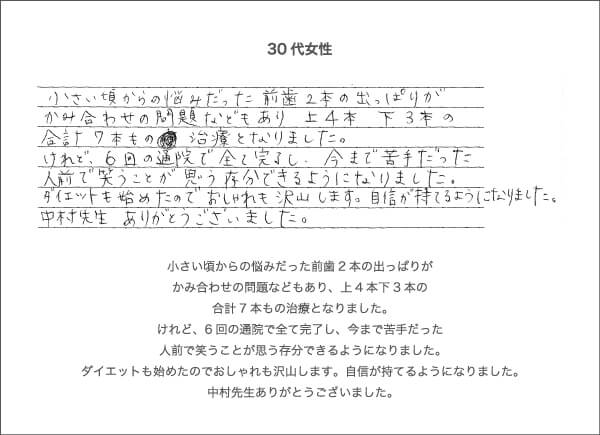 30代女性
小さい頃からの悩みだった前歯2本の出っぱりが
かみ合わせの問題などもあり 上4本 下3本の
合計7本もの 治療となりました。
けれど、6回の通院で全て完了し、今まで苦手だった
人前で笑うことが思う存分できるようになりました。
ダイエットも始めたのでおしゃれも沢山します。自信が持てるようになりました。
中村先生 ありがとうございました。
小さい頃からの悩みだった前歯2本の出っぱりが
かみ合わせの問題などもあり、上4本下3本の
合計7本もの治療となりました。
けれど、6回の通院で全て完了し、今まで苦手だった
人前で笑うことが思う存分できるようになりました。
ダイエットも始めたのでおしゃれも沢山します。自信が持てるようになりました。
中村先生ありがとうございました。